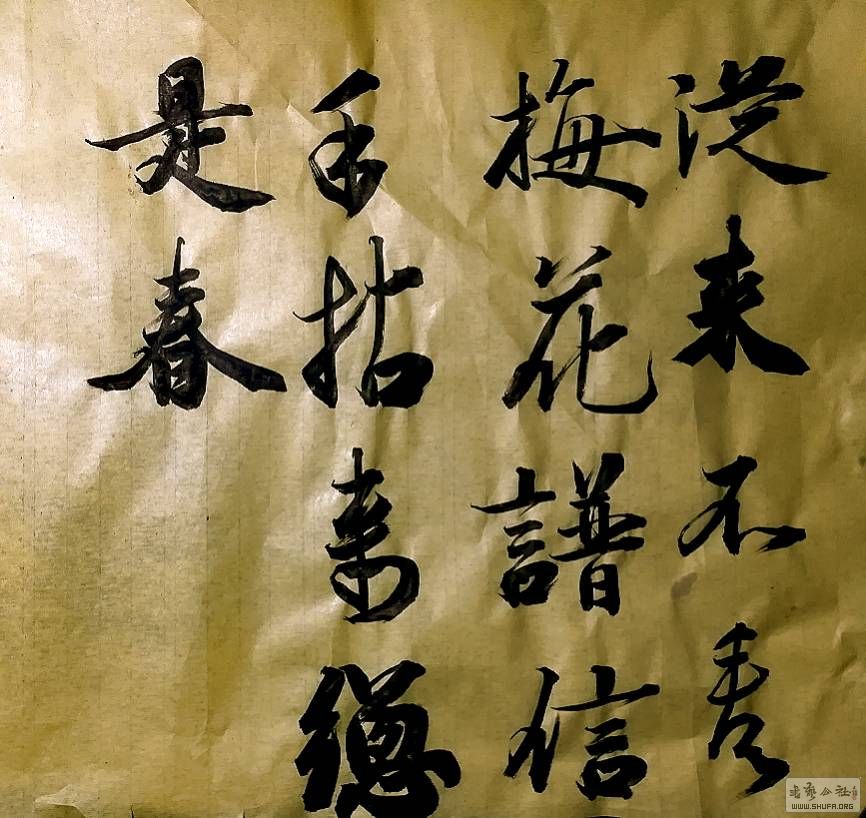 從来不看
梅花譜信
手拈来總
是春
书艺公社
WWW.SHUFA.ORG